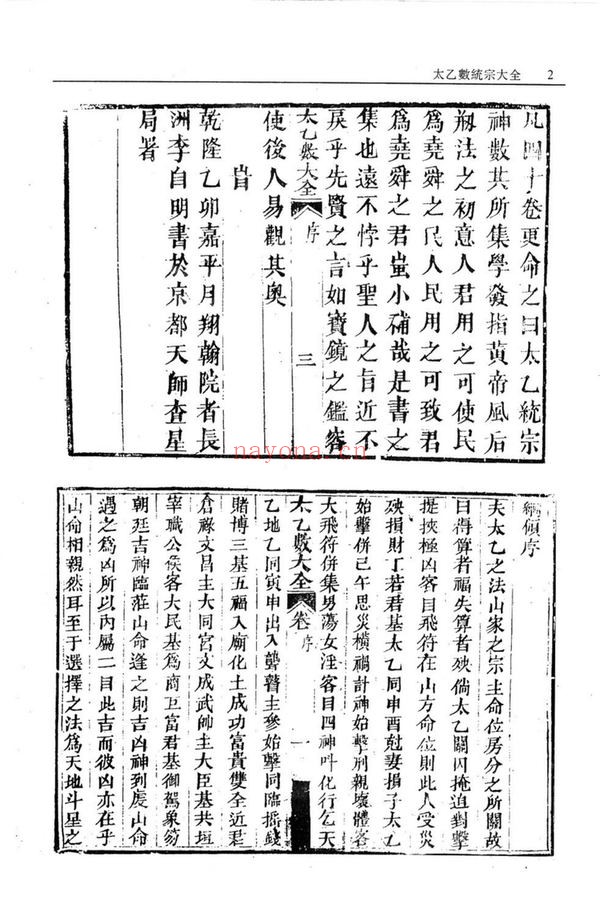 太乙數統宗大全 2
凡四十卷更命之曰太乙統宗
神數其所集學發指黃帝風后
剏法之初意人君用之可使民
爲堯舜之民人民用之可致君
爲堯舜之君豈小補哉是書之
集也遠不悖乎聖人之旨近不
戾乎先賢之言如寶鏡之鑑容
太乙數大全 序 三
使後人易觀其奧
旹
乾隆乙卯嘉平月翔翰院者長
洲李自明書於京都天師查星
局署
纘傾序
夫太乙之法山家之宗主命位房分之所關故
曰得算者福失算者殃倘太乙關囚掩迫對擊
提挾極凶客目飛符在山方命位則此人受災
殃損財丁若君基太乙同申酉尅妻損子太乙
始擊併己午思災橫禍計神始擊刑親壞體客
大飛符併集男蕩女淫客目四神呌化行乞天
太乙數大全 卷序 一
乙地乙同寅申出入聾瞽主參始擊同臨摇錢
賭博三基五福入廟化土成功富貴雙全近君
倉祿文昌主大同宮文成武帥主大臣基共垣
宰職公侯客大民基爲商巨富君基御駕象笏
朝廷吉神臨莅山命逢之則吉凶神到處山命
遇之爲凶所以内屬二目此吉而彼凶亦在乎
山命相親然耳至于選擇之法爲天地斗星之
nayona.cn